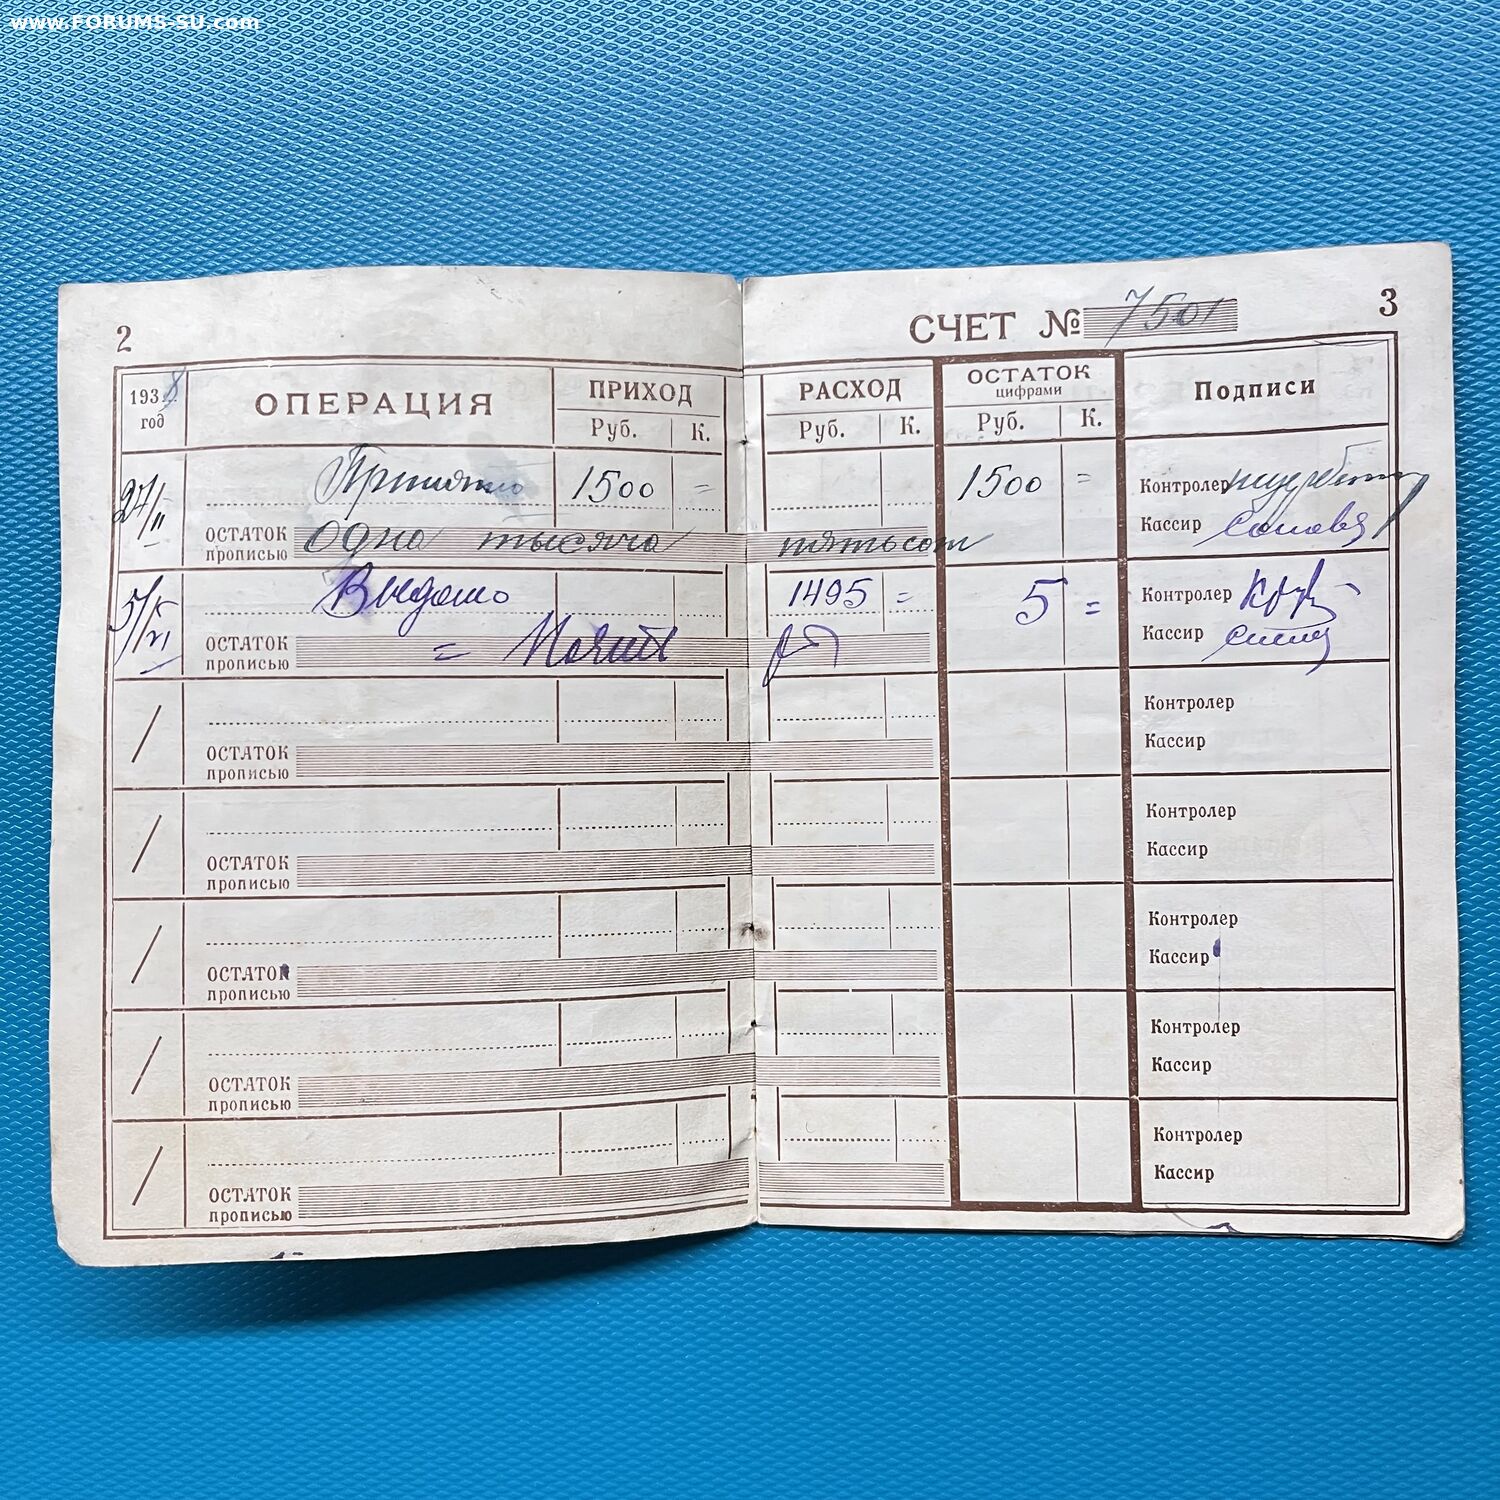 www.FORUMS-SU.com
2
СЧЕТ № 7501
3
1938 год
ОПЕРАЦИЯ
ПРИХОД
Руб. К.
РАСХОД
Руб. К.
ОСТАТОК
цифрами
Руб. К.
Подписи
27/II Принято 1500 = 1500 =
Контролер
Кассир
ОСТАТОК прописью одна тысяча пятьсот
5/VI Выдано 1495 = 5 =
Контролер
Кассир
ОСТАТОК прописью =
Контролер
Кассир
ОСТАТОК прописью
Контролер
Кассир
ОСТАТОК прописью
Контролер
Кассир
ОСТАТОК прописью
Контролер
Кассир
ОСТАТОК прописью
Контролер
Кассир
ОСТАТОК прописью